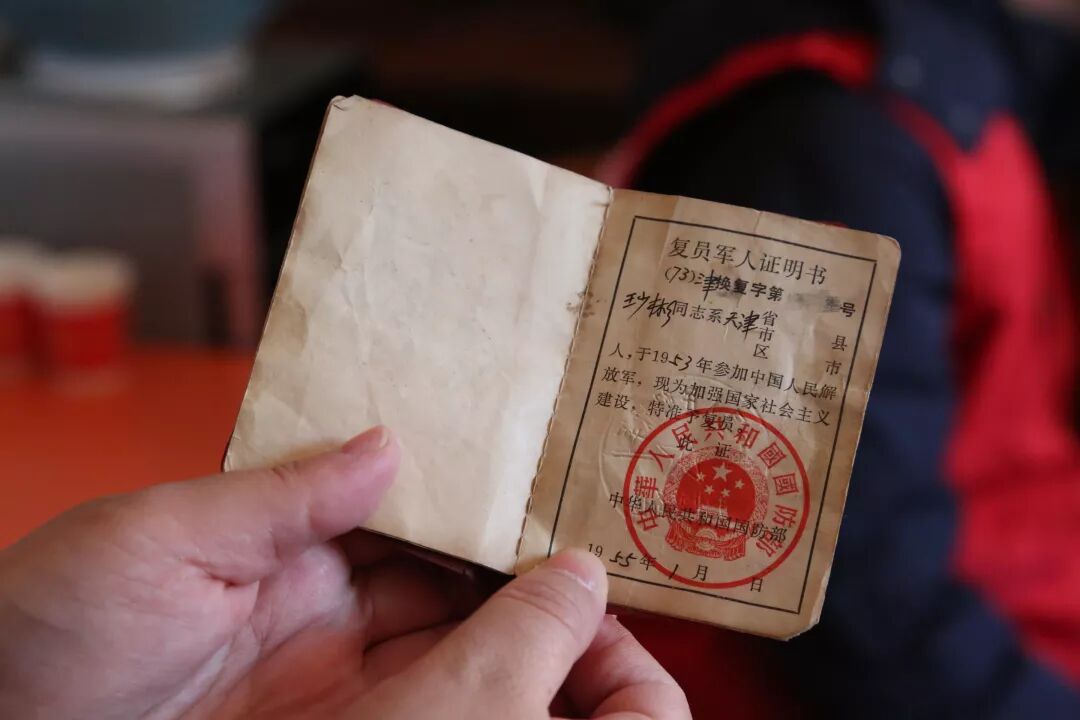 复员军人证明书
(73)津换复字第 号
王少彬同志系天津省市区 县市
人，于1953年参加中国人民解
放军，现为加强国家社会主义
建设，特准予复员。
此 证
中华人民共和国国防部
1955年1月 日
中華人民共和國國防部